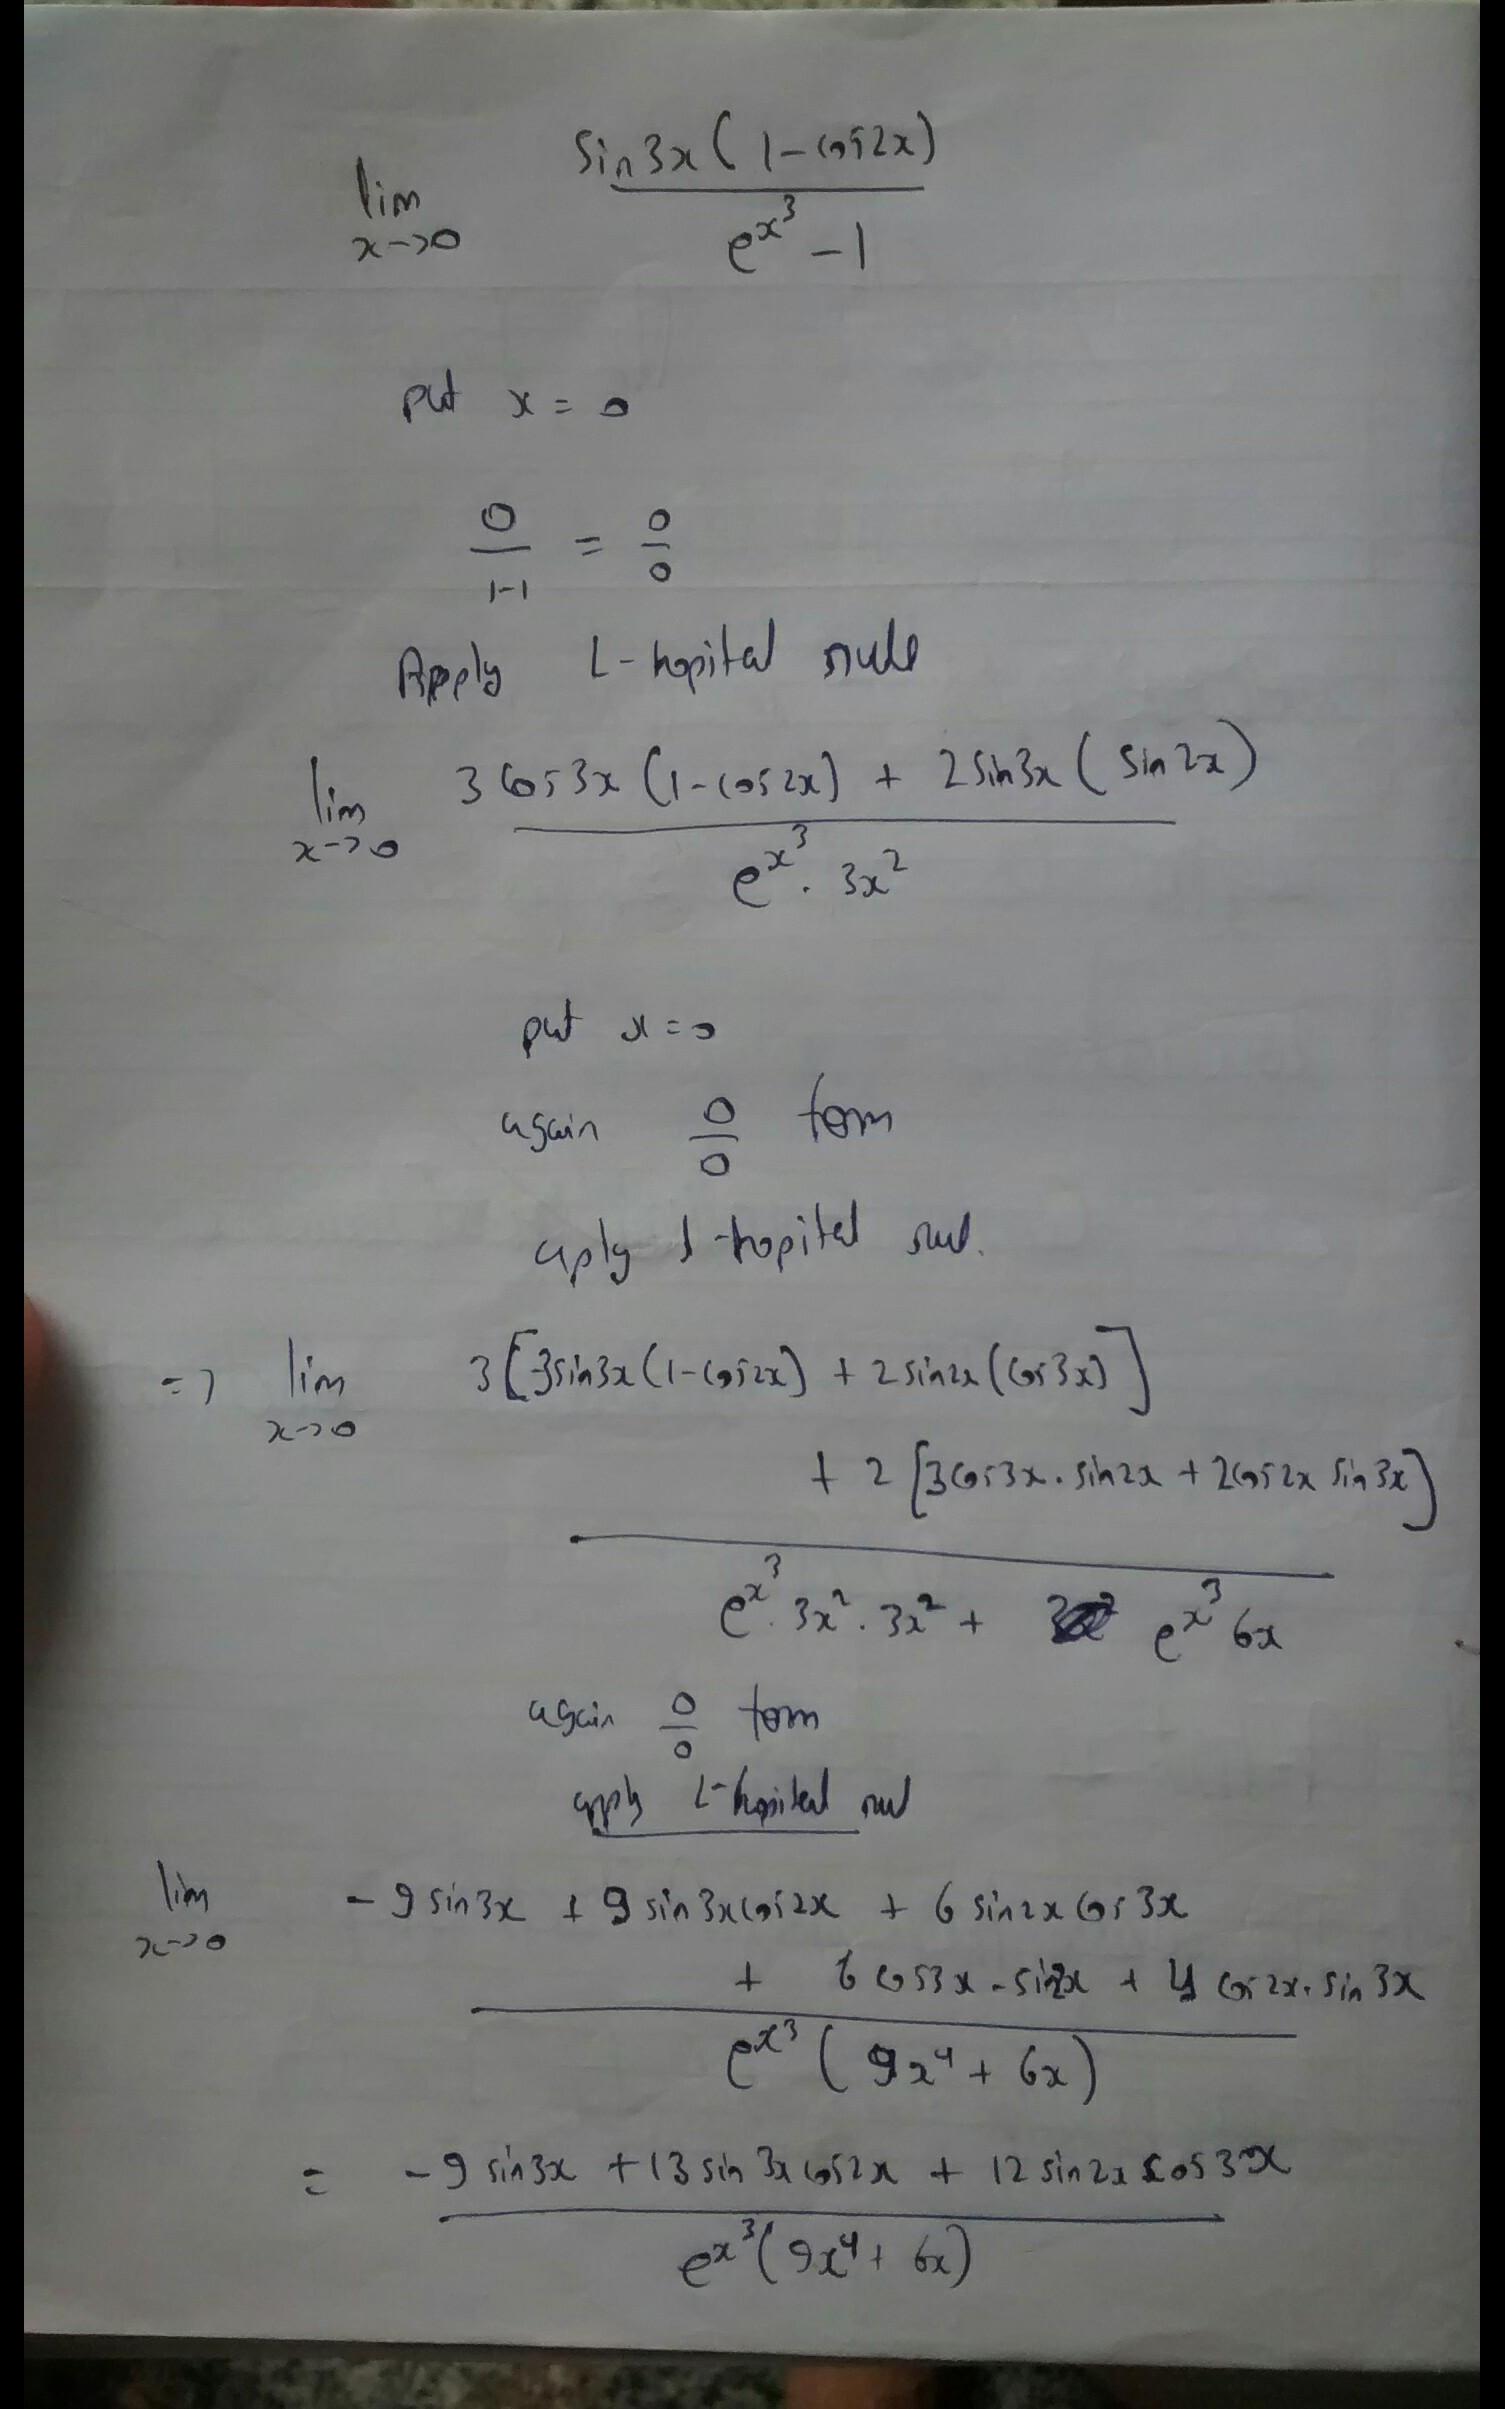 lim x->0 sin3x(1-cos2x) / e^x³ - 1
put x = 0
0/1-1 = 0/0
Apply L-hopital rule
lim x->0 3cos3x(1-cos2x) + 2sin3x(sin2x) / e^x³ . 3x²
put x=0
again 0/0 form
aply L-hopital rul.
=> lim x->0 3[-3sin3x(1-cos2x) + 2sin2x(cos3x)]
+ 2[3cos3x.sin2x + 2cos2x sin3x]
/ e^x³ . 3x² . 3x² + e^x³ 6x
again 0/0 form
apply L-hopital rul
lim x->0 -9sin3x + 9sin3xcos2x + 6sin2xcos3x
+ 6cos3x.sin2x + 4cos2x.sin3x
/ e^x³(9x⁴ + 6x)
= -9sin3x + 13sin3xcos2x + 12sin2xcos3x
/ e^x³(9x⁴ + 6x)